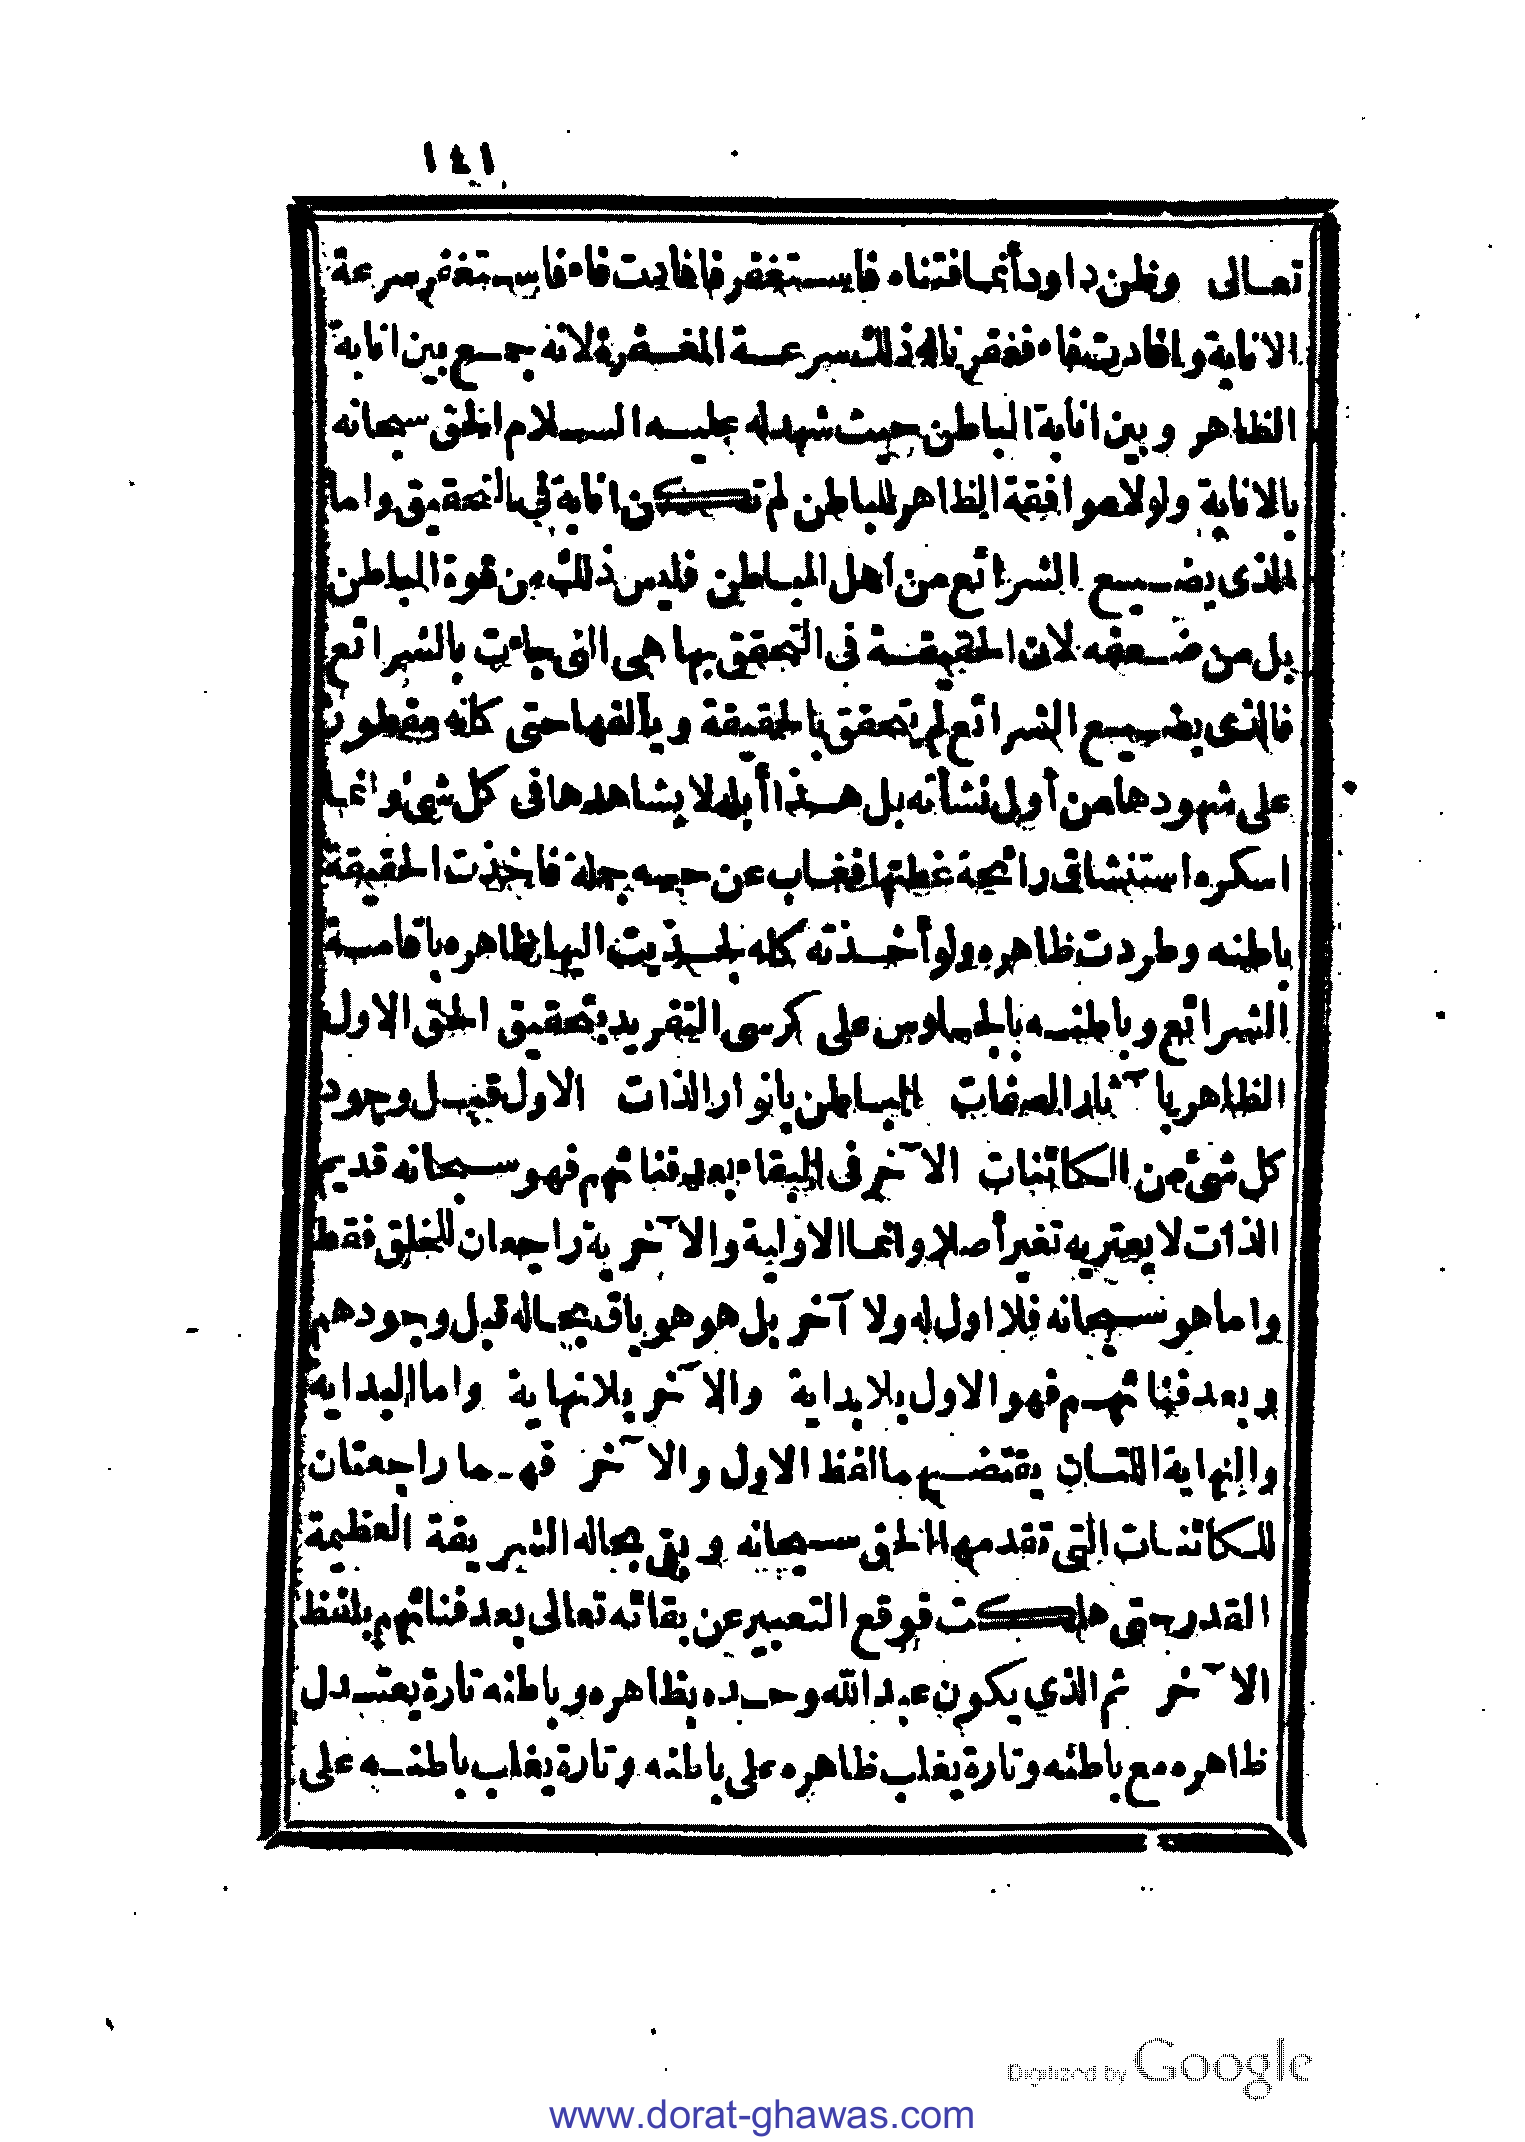 ١٤١
تعالى وظن داود أنما فتناه فاستغفر فافادت فاء فاستغفر سرعة
الانابة وافادت فاء فغفرنا له ذلك سرعة المغفرة لانه جمع بين انابة
الظاهر وبين انابة الباطن حيث شهد له عليه السلام الحق سبحانه
بالانابة ولولا موافقة الظاهر للباطن لم تكن انابة في التحقيق واما
الذى يضيع الشرائع من أهل الباطن فليس ذلك من قوة الباطن
بل من ضعفه لان الحقيقة فى التحقق بها هى التى جاءت بالشرائع
فالذى يضيع الشرائع لم يتحقق بالحقيقة ويألفها حتى كأنه مفطور
على شهودها من أول نشأته بل هذا أبله لا يشاهدها فى كل شئ وانما
اسكره استنشاق رائحة غطتها فغاب عن حسه جملة فاخذت الحقيقة
باطنه وطردت ظاهره ولو أخذته كله لجذبت اليها ظاهره باقامة
الشرائع وباطنه بالجلوس على كرسى التفريد بتحقيق الحق الاول
الظاهر با ثار الصفات الباطن بانوار الذات الاول قبل وجود
كل شئ من الكائنات الآخر فى البقاء بعد فنائهم فهو سبحانه قديم
الذات لا يعتريه تغير أصلا وانما الاولية والآخرية راجعان للخلق فقط
واما هو سبحانه فلا اول له ولا آخر بل هو هو باق بحاله قبل وجودهم
وبعد فنائهم فهو الاول بلا بداية والآخر بلا نهاية واما البداية
والنهاية اللتان يقتضيهما لفظ الاول والآخر فهما راجعتان
للكائنات التى تقدمها الحق سبحانه وبقى بحاله الشريقة العظيمة
القدر حتى هلكت فوقع التعبير عن بقائه تعالى بعد فنائهم بلفظ
الآخر ثم الذي يكون عبد الله وحده بظاهره وباطنه تارة يعتدل
ظاهره مع باطنه وتارة يغلب ظاهره على باطنه وتارة يغلب باطنه على
Digitized by Google
www.dorat-ghawas.com